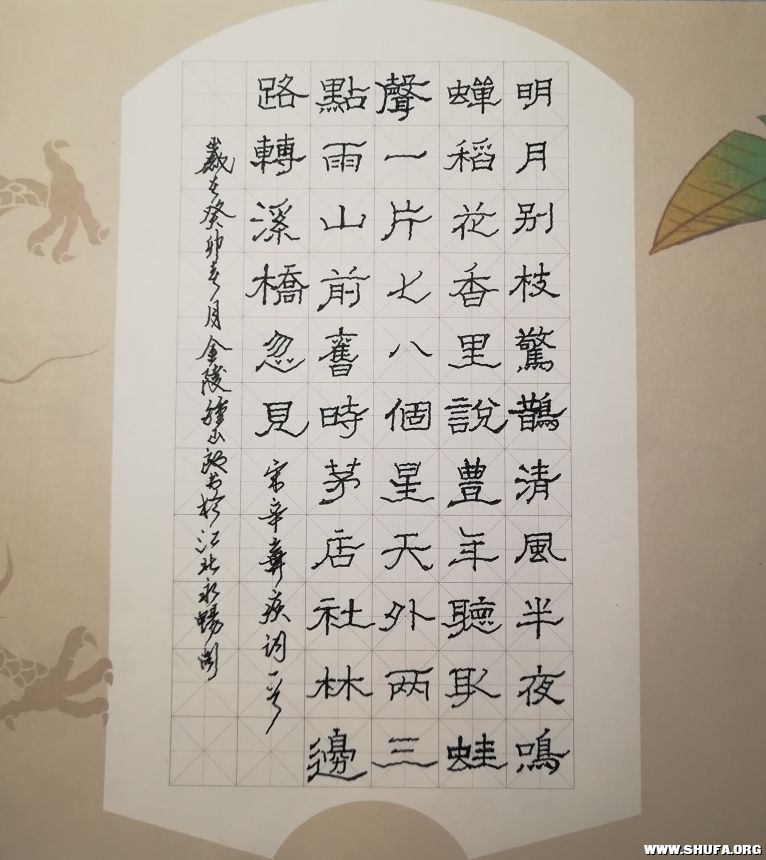 明月别枝驚鵲清風半夜鳴
蟬稻花香里説豊年聽取蛙
聲一片七八個星天外两三
點雨山前舊時茅店社林邊
路轉溪橋忽見 宋辛棄疾词一首
歲在癸卯春月金陵鍾山書於江北永暢閣
WWW.SHUFA.ORG